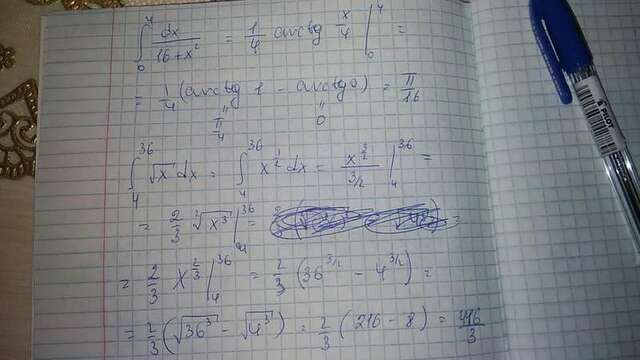 ∫₀⁴ dx/(16+x²) = 1/4 arctg x/4 |₀⁴ =
= 1/4 (arctg 1 − arctg 0) = π/16
" "
π/4 0
∫₄³⁶ √x dx = ∫₄³⁶ x^(1/2) dx = x^(3/2)/(3/2) |₄³⁶ =
= 2/3 ²√x³ |₄³⁶ = =
= 2/3 x^(2/3) |₄³⁶ = 2/3 (36^(3/2) − 4^(3/2)) =
= 2/3 (√36³ − √4³) = 2/3 (216 − 8) = 416/3
PILOT